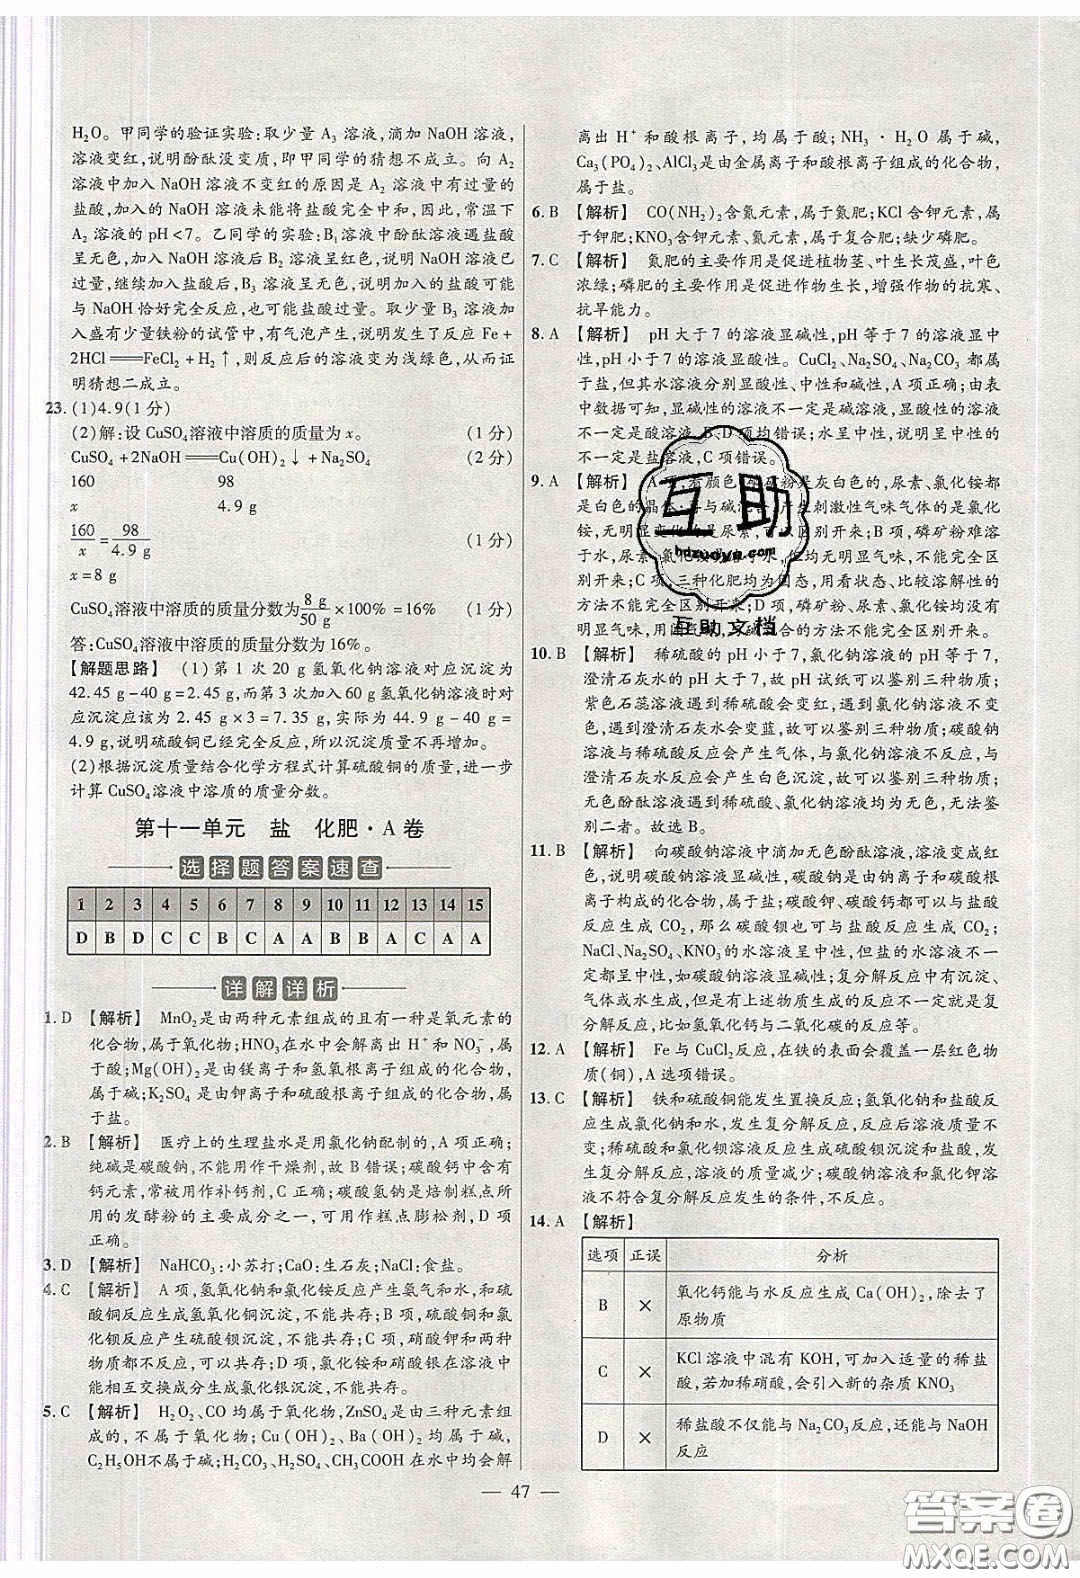 H₂O。甲同学的验证实验:取少量 A₃ 溶液,滴加 NaOH 溶液,
溶液变红,说明酚酞没变质,即甲同学的猜想不成立。向 A₂
溶液中加入 NaOH 溶液不变红的原因是 A₂ 溶液中有过量的
盐酸,加入的 NaOH 溶液未能将盐酸完全中和,因此,常温下
A₂ 溶液的 pH<7。乙同学的实验:B₁溶液中酚酞溶液遇盐酸
呈无色,加入 NaOH 溶液后 B₂ 溶液呈红色,说明 NaOH 已
过量,继续加入盐酸后,B₃ 溶液呈无色,说明加入的盐酸可能
与 NaOH 恰好完全反应,也可能盐酸过量。取少量 B₃ 溶液
加入盛有少量铁粉的试管中,有气泡产生,说明发生了反应 Fe+
2HCl══FeCl₂+H₂↑,则反应后的溶液变为浅绿色,从而证
明猜想二成立。
23. (1)4.9(1分)
(2)解:设 CuSO₄溶液中溶质的质量为 x。 (1分)
CuSO₄+2NaOH══Cu(OH)₂↓+Na₂SO₄ (2分)
160 98
x 4.9 g
160/x=98/4.9 g (1分)
x=8 g
CuSO₄溶液中溶质的质量分数为8 g/50 g×100%=16% (1分)
答:CuSO₄溶液中溶质的质量分数为16%。
【解题思路】 (1)第1次20 g氢氧化钠溶液对应沉淀为
42.45 g-40 g=2.45 g,而第3次加入60 g氢氧化钠溶液时对
应沉淀应该为2.45 g×3=7.35 g,实际为44.9 g-40 g=
4.9 g,说明硫酸铜已经完全反应,所以沉淀质量不再增加。
(2)根据沉淀质量结合化学方程式计算硫酸铜的质量,进一步
计算 CuSO₄溶液中溶质的质量分数。
第十一单元 盐 化肥·A卷
选择题答案速查
1 2 3 4 5 6 7 8 9 10 11 12 13 14 15
D B D C C B C A A B B A C A A
详解详析
1. D 【解析】 MnO₂是由两种元素组成的且有一种是氧元素的
化合物,属于氧化物;HNO₃在水中会解离出 H⁺和 NO₃⁻,属
于酸;Mg(OH)₂是由镁离子和氢氧根离子组成的化合物,
属于碱;K₂SO₄是由钾离子和硫酸根离子组成的化合物,属
于盐。
2. B 【解析】 医疗上的生理盐水是用氯化钠配制的,A项正确;
纯碱是碳酸钠,不能用作干燥剂,故B错误;碳酸钙中含有
钙元素,常被用作补钙剂,C正确;碳酸氢钠是焙制糕点所
用的发酵粉的主要成分之一,可用作糕点膨松剂,D项
正确。
3. D 【解析】 NaHCO₃:小苏打;CaO:生石灰;NaCl:食盐。
4. C 【解析】 A项,氢氧化钠和氯化铵反应产生氨气和水,和硫
酸铜反应生成氢氧化铜沉淀,不能共存;B项,硫酸铜和氯
化钡反应产生硫酸钡沉淀,不能共存;C项,硝酸钾和两种
物质都不反应,可以共存;D项,氯化铵和硝酸银在溶液中
能相互交换成分生成氯化银沉淀,不能共存。
5. C 【解析】 H₂O₂、CO均属于氧化物,ZnSO₄是由三种元素组
成的,不属于氧化物;Cu(OH)₂、Ba(OH)₂ 均属于碱,
C₂H₅OH不属于碱;H₂CO₃、H₂SO₄、CH₃COOH 在水中均会解
离出 H⁺ 和酸根离子,均属于酸;NH₃·H₂O 属于碱,
Ca₃(PO₄)₂、AlCl₃是由金属离子和酸根离子组成的化合物,
属于盐。
6. B 【解析】 CO(NH₂)₂含氮元素,属于氮肥;KCl含钾元素,属
于钾肥;KNO₃含钾元素、氮元素,属于复合肥;缺少磷肥。
7. C 【解析】 氮肥的主要作用是促进植物茎、叶生长茂盛,叶色
浓绿;磷肥的主要作用是促进作物生长,增强作物的抗寒、
抗旱能力。
8. A 【解析】 pH大于7的溶液显碱性,pH等于7的溶液显中
性,pH小于7的溶液显酸性。CuCl₂、Na₂SO₄、Na₂CO₃ 都属
于盐,但其水溶液分别显酸性、中性和碱性,A项正确;由表
中数据可知,显碱性的溶液不一定是碱溶液,显酸性的溶液
不一定是酸溶液,B、D项均错误;水呈中性,但显中性的溶液
不一定是盐溶液,C项错误。
9. A 【解析】 A项,看颜色,磷矿粉是灰白色的,尿素、氯化铵都
是白色的晶体,再与碱混合,产生刺激性气味气体的是氯化
铵,无明显变化的是尿素,可以区别开来;B项,磷矿粉难溶
于水,尿素、氯化铵易溶于水,但均无明显气味,不能完全区
别开来;C项,三种化肥均为固态,用看状态、比较溶解性的
方法不能完全区别开来;D项,磷矿粉、尿素、氯化铵均没有
明显气味,用闻气味、加碱混合的方法不能完全区别开来。
10. B 【解析】 稀硫酸的pH小于7,氯化钠溶液的pH等于7,
澄清石灰水的pH大于7,故pH试纸可以鉴别三种物质;
紫色石蕊溶液遇到稀硫酸会变红,遇到氯化钠溶液不变
色,遇到澄清石灰水会变蓝,故可以鉴别三种物质;碳酸钠
溶液与稀硫酸反应会产生气体,与氯化钠溶液不反应,与
澄清石灰水反应会产生白色沉淀,故可以鉴别三种物质;
无色酚酞溶液遇到稀硫酸、氯化钠溶液均为无色,无法鉴
别二者。故选B。
11. B 【解析】 向碳酸钠溶液中滴加无色酚酞溶液,溶液变成红
色,说明碳酸钠溶液显碱性,碳酸钠是由钠离子和碳酸根
离子构成的化合物,属于盐;碳酸钠、碳酸钙都可以与盐酸
反应生成CO₂,那么碳酸钡也可与盐酸反应生成CO₂;
NaCl、Na₂SO₄、KNO₃的水溶液呈中性,但盐溶液不一
定都呈中性,如碳酸钠溶液显碱性;复分解反应中有沉淀、
气体或水生成,但是有上述物质生成的反应不一定是复分
解反应,比如氢氧化钙与二氧化碳的反应等。
12. A 【解析】 Fe与CuCl₂反应,在铁的表面会覆盖一层红色物
质(铜),A选项错误。
13. C 【解析】 铁和硫酸铜能发生置换反应;氢氧化钠和盐酸反
应生成氯化钠和水,发生复分解反应,反应后溶液质量不
变;稀硫酸和氯化钡溶液反应生成硫酸钡沉淀和盐酸,
发生复分解反应,溶液的质量减少;碳酸钠溶液和氯化钾溶
液不符合复分解反应发生的条件,不反应。
14. A 【解析】
选项 正误 分析
B × 氧化钙能与水反应生成Ca(OH)₂,除去了
原物质
C × KCl溶液中混有KOH,可加入适量的稀盐
酸,若加稀硝酸,会引入新的杂质KNO₃
D × 稀盐酸不仅能与Na₂CO₃反应,还能与NaOH
反应
— 47 —
互助
hdzuoye.com
互助文档
答案圈
MXQE.COM